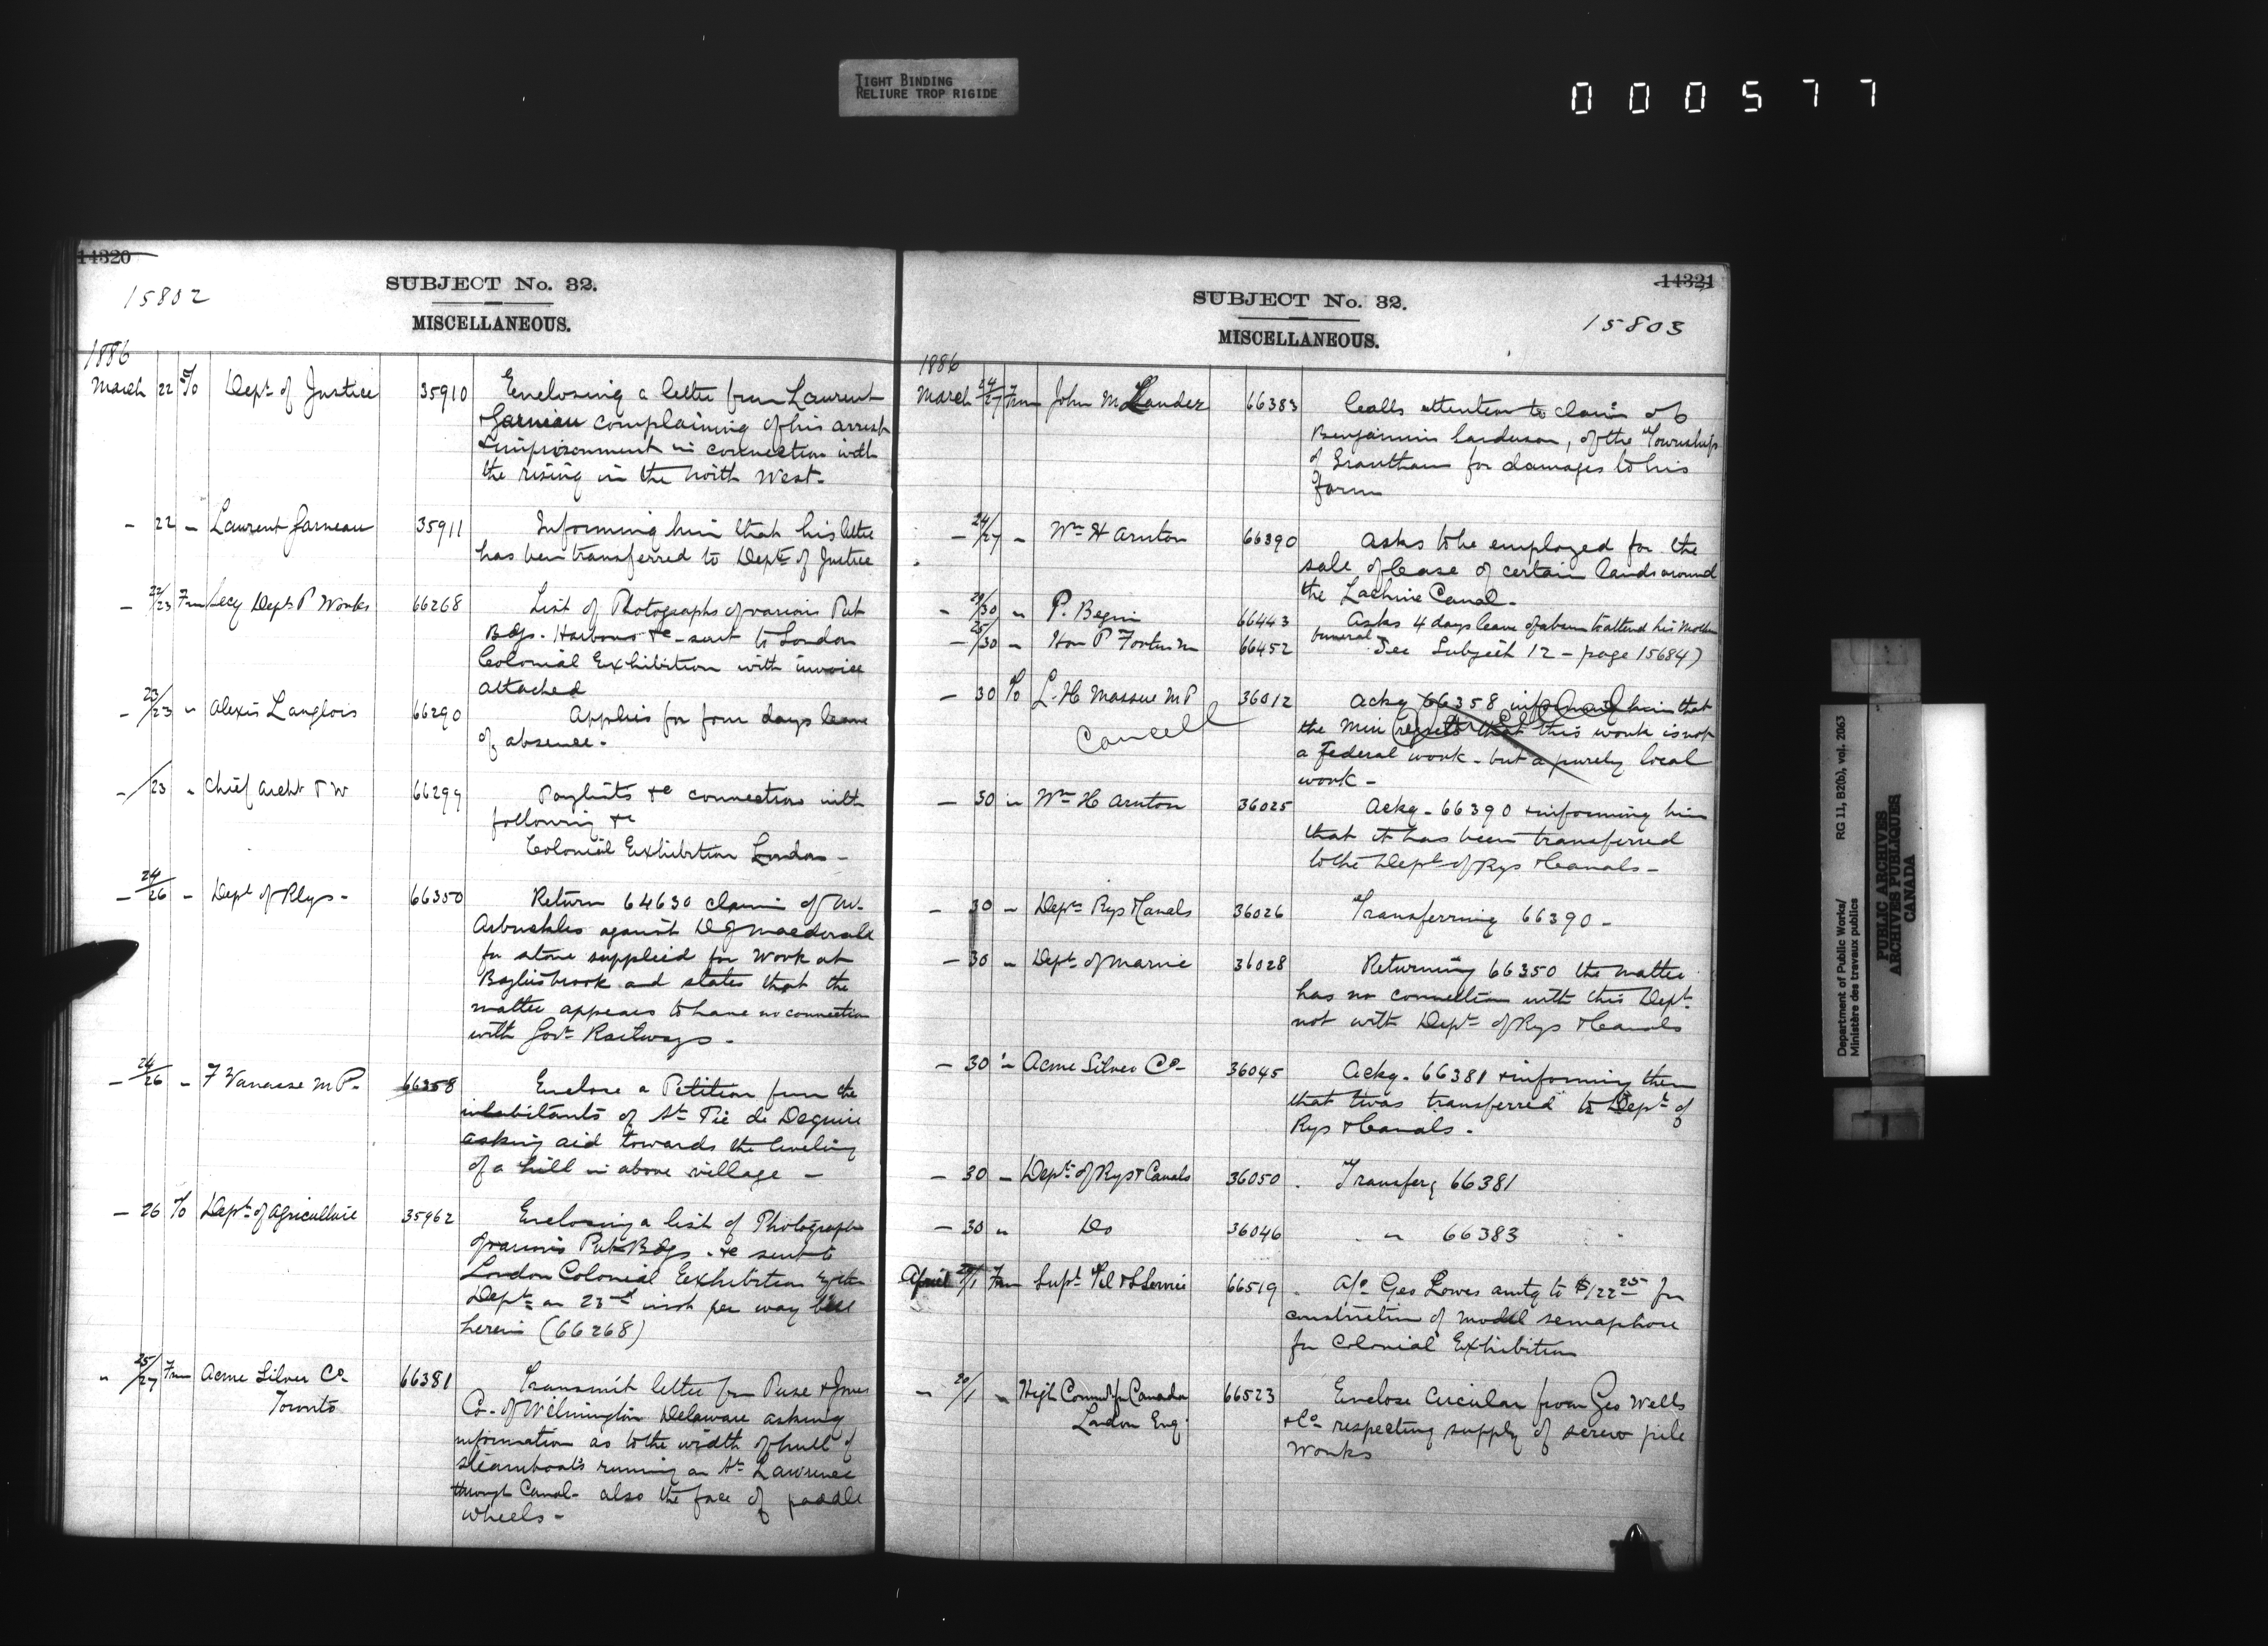 TIGHT BINDING
RELIURE TROP RIGIDE
000577
14320
15802
SUBJECT No. 32.
MISCELLANEOUS.
1886
March 22 To Dept of Justice 35910 Enclosing a letter from Laurent
Garneau complaining of his arrest
& imprisonment in connection with
the rising in the North West.
- 22 - Laurent Garneau 35911 Informing him that his letter
has been transferred to Dept of Justice
- 22/23 From Secy Dept P Works 66268 List of Photographs of various Pub
Bdgs. Harbours &c - sent to London
Colonial Exhibition with invoice
attached
- 23/23 " Alexis Langlois 66290 Applies for four days leave
of absence.
- /23 " Chief Archt P W 66299 Paylists &c connection with
following &c
Colonial Exhibition London -
- 24/26 - Dept of Rlys - 66350 Return 64630 claim of
Arbuckles against D J Macdonald
for stone supplied for work at
and states that the
matter appears to have no connection
with Govt Railways -
- 24/26 - F Vanasse M P - 66358 Enclose a Petition from the
inhabitants of St Pie de Deguire
asking aid towards the leveling
of a hill in above village -
- 26 To Dept of Agriculture 35962 Enclosing a list of Photographs
of various Pub Bdgs - &c sent to
London Colonial Exhibition by the
Dept on 23rd inst per way bill
herein (66268)
" 25/27 From Acme Silver Co 66381 Transmit letter from Puse & Jones
Toronto
Co - of Wilmington Delaware asking
information as to the width of hull of
steamboats running on St Lawrence
through Canal - also the face of paddle
wheels -
14321
15803
SUBJECT No. 32.
MISCELLANEOUS.
1886
March 24/27 From John M 66383 Calls attention to claim of
Benjamin of the Township
of Grantham for damages to his
farm
- 24/27 " Wm H Arnton 66390 Asks to be employed for the
sale of lease of certain lands around
the Lachine Canal -
- 29/30 " P. Begin 66443 Asks 4 days leave of absen to attend his Mother
funeral
- 25/30 " Hon P Fortin 66452 See Subject 12 - page 15684)
- 30 To L. H Massue M P 36012 Ackg 66358 informing him that
Cancell
the Min regrets that this work is not
a Federal work - but a purely local
work -
- 30 " Wm H Arnton 36025 Ackg - 66390 & informing him
that it has been transferred
to the Dept of Rys & Canals -
- 30 - Dept Rys & Canals 36026 Transferring 66390 -
- 30 " Dept of Marine 36028 Returning 66350 the matter
has no connection with this Dept
not with Dept of Rys & Canals
- 30 " Acme Silver Co - 36045 Ackg - 66381 & informing them
that twas transferred to Dept of
Rys & Canals -
- 30 - Dept of Rys & Canals 36050 Transferg 66381
- 30 " Do 36046 " 66383
April /1 From Supt Tel & S Service 66519 A/c Geo Lowes amtg to $122 25 for
construction of model semaphore
for Colonial Exhibition
- 20/1 " High Commr for Canada 66523 Enclose Circular from Geo Wells
London Eng.
& Co - respecting supply of screw pile
Works
Department of Public Works/
Ministère des travaux publics
RG 11, B2(b), vol. 2063
PUBLIC ARCHIVES
ARCHIVES PUBLIQUES
CANADA